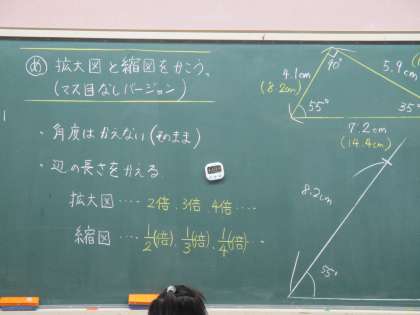 め 拡大図と縮図をかこう。
(マス目なしバージョン)
・角度はかえない(そのまま)
・辺の長さをかえる
拡大図‥‥2倍、3倍、4倍‥‥
縮図‥‥1/2(倍)、1/3(倍)、1/4(倍)‥
90°
4.1cm
(8.2cm)
5.9cm
55°
35°
7.2cm
(14.4cm)
8.2cm
55°